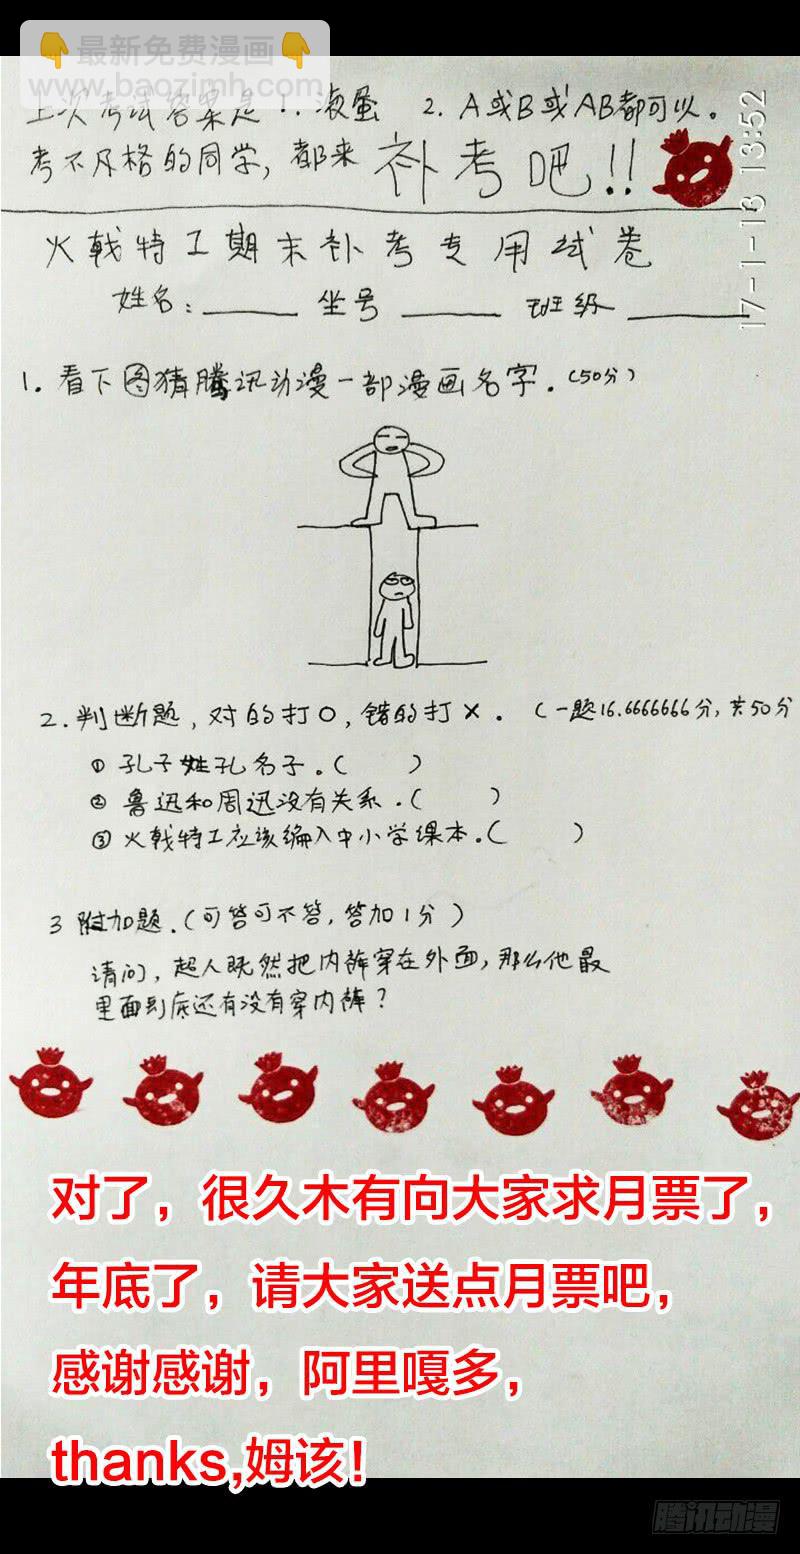 👇最新免费漫画👇
www.baozimh.com
上次考试答案是 1. 滚蛋 2. A或B或AB都可以。
考不及格的同学，都来 补考吧!!
17-1-13 13:52
火戟特工期末补考专用试卷
姓名：______ 坐号 ______ 班级 ______
1. 看下图猜腾讯动漫一部漫画名字. (50分)
2. 判断题, 对的打O, 错的打×. (一题16.6666666分, 共50分
① 孔子姓孔名子. ( )
② 鲁迅和周迅没有关系. ( )
③ 火戟特工应该编入中小学课本. ( )
3 附加题. (可答可不答, 答加1分)
请问, 超人既然把内裤穿在外面, 那么他最
里面到底还有没有穿内裤?
对了，很久木有向大家求月票了，
年底了，请大家送点月票吧，
感谢感谢，阿里嘎多，
thanks,姆该！
腾讯动漫